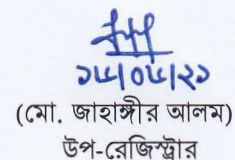 ১৫/০৮/২১
(মো. জাহাঙ্গীর আলম)
উপ-রেজিস্ট্রার